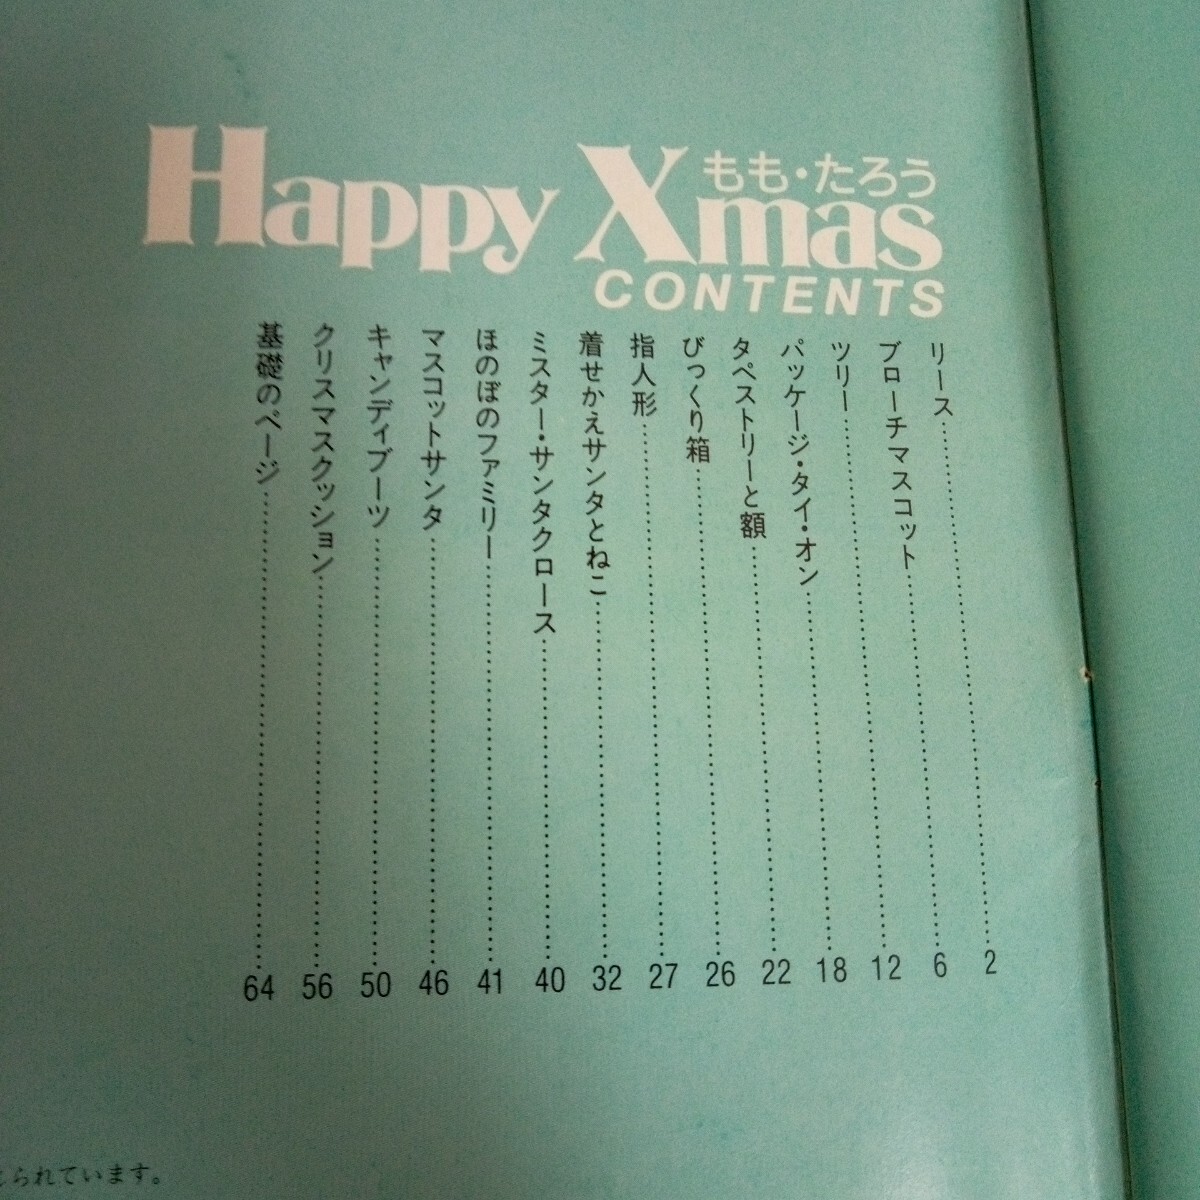 もも・たろう
Happy Xmas
CONTENTS
リース 2
ブローチマスコット 6
ツリー 12
パッケージ・タイ・オン 18
タペストリーと額 22
びっくり箱 26
指人形 27
着せかえサンタとねこ 32
ミスター・サンタクロース 40
ほのぼのファミリー 41
マスコットサンタ 46
キャンディブーツ 50
クリスマスクッション 56
基礎のページ 64
られています。